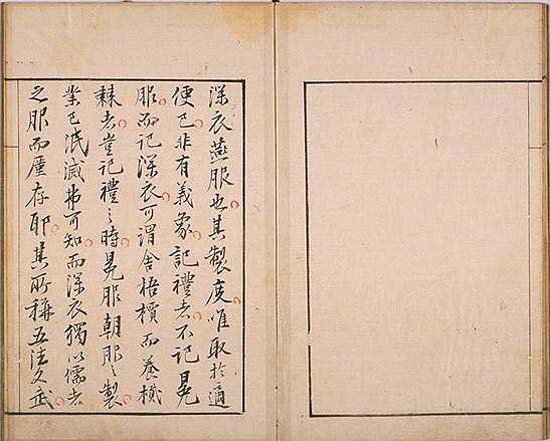 深衣燕服也其製度唯取於適
便已非有義象記禮者不記冕
服而記深衣可謂舍梧檟而養樲
棘者豈記禮之時冕服朝服之製
業已泯滅弗可知而深衣獨以儒者
之服而廑存耶其所稱五法文武